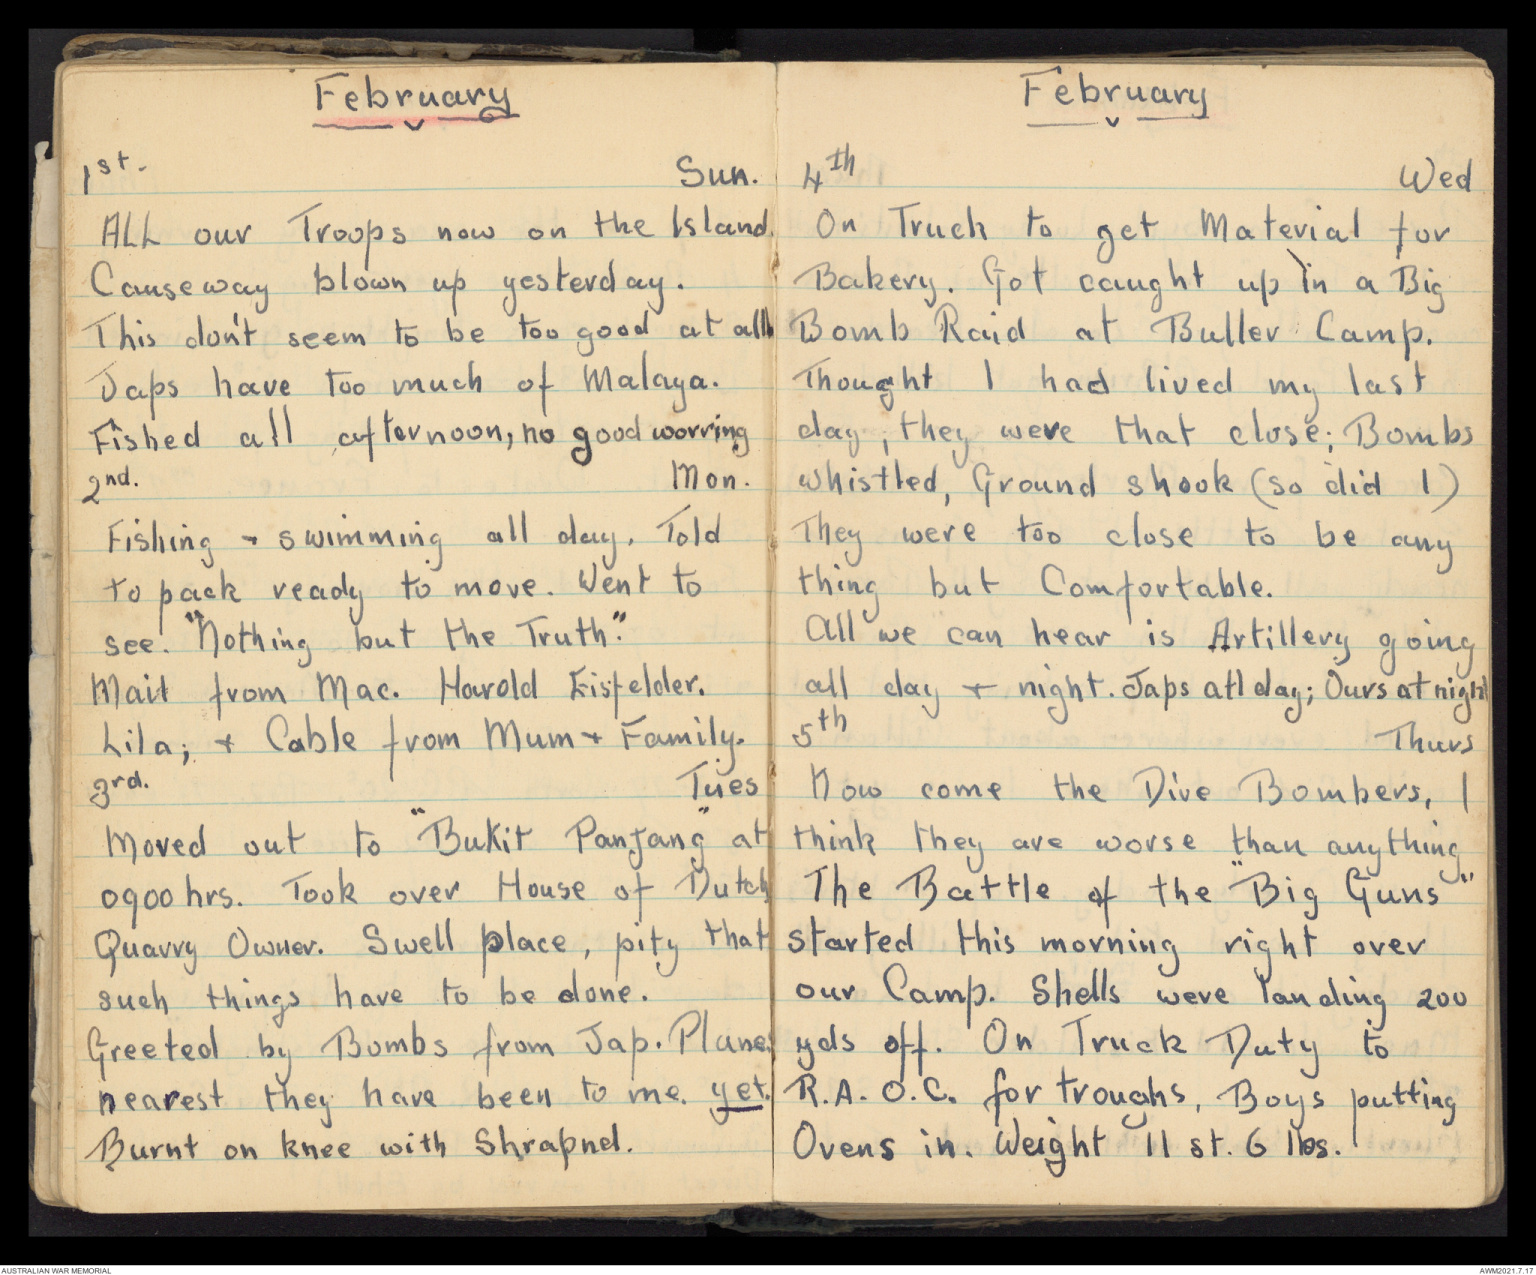 February
1st. Sun.
ALL our Troops now on the Island.
Causeway blown up yesterday.
This don't seem to be too good at all
Japs have too much of Malaya.
Fished all afternoon, no good worring
2nd. Mon.
Fishing + swimming all day. Told
to pack ready to move. Went to
see. "Nothing but the Truth".
Mail from Mac. Harold Eisfelder.
Lila; + Cable from Mum + Family.
3rd. Tues
Moved out to "Bukit Panjang" at
0900 hrs. Took over House of Dutch
Quarry Owner. Swell place, pity that
such things have to be done.
Greeted by Bombs from Jap. Planes
nearest they have been to me. yet.
Burnt on knee with Shrapnel.
February
4th Wed
On Truck to get Material for
Bakery. Got caught up in a Big
Bomb Raid at Buller Camp.
Thought I had lived my last
day, they were that close; Bombs
whistled, Ground shook (so did I)
They were too close to be any
thing but Comfortable.
All we can hear is Artillery going
all day + night. Japs all day; Ours at night
5th Thurs
Now come the Dive Bombers, I
think they are worse than anything
The Battle of the "Big Guns"
started this morning right over
our Camp. Shells were landing 200
yds off. On Truck Duty to
R.A.O.C. for troughs, Boys putting
Ovens in. Weight 11 st. 6 lbs.
AUSTRALIAN WAR MEMORIAL
AWM2021.7.17